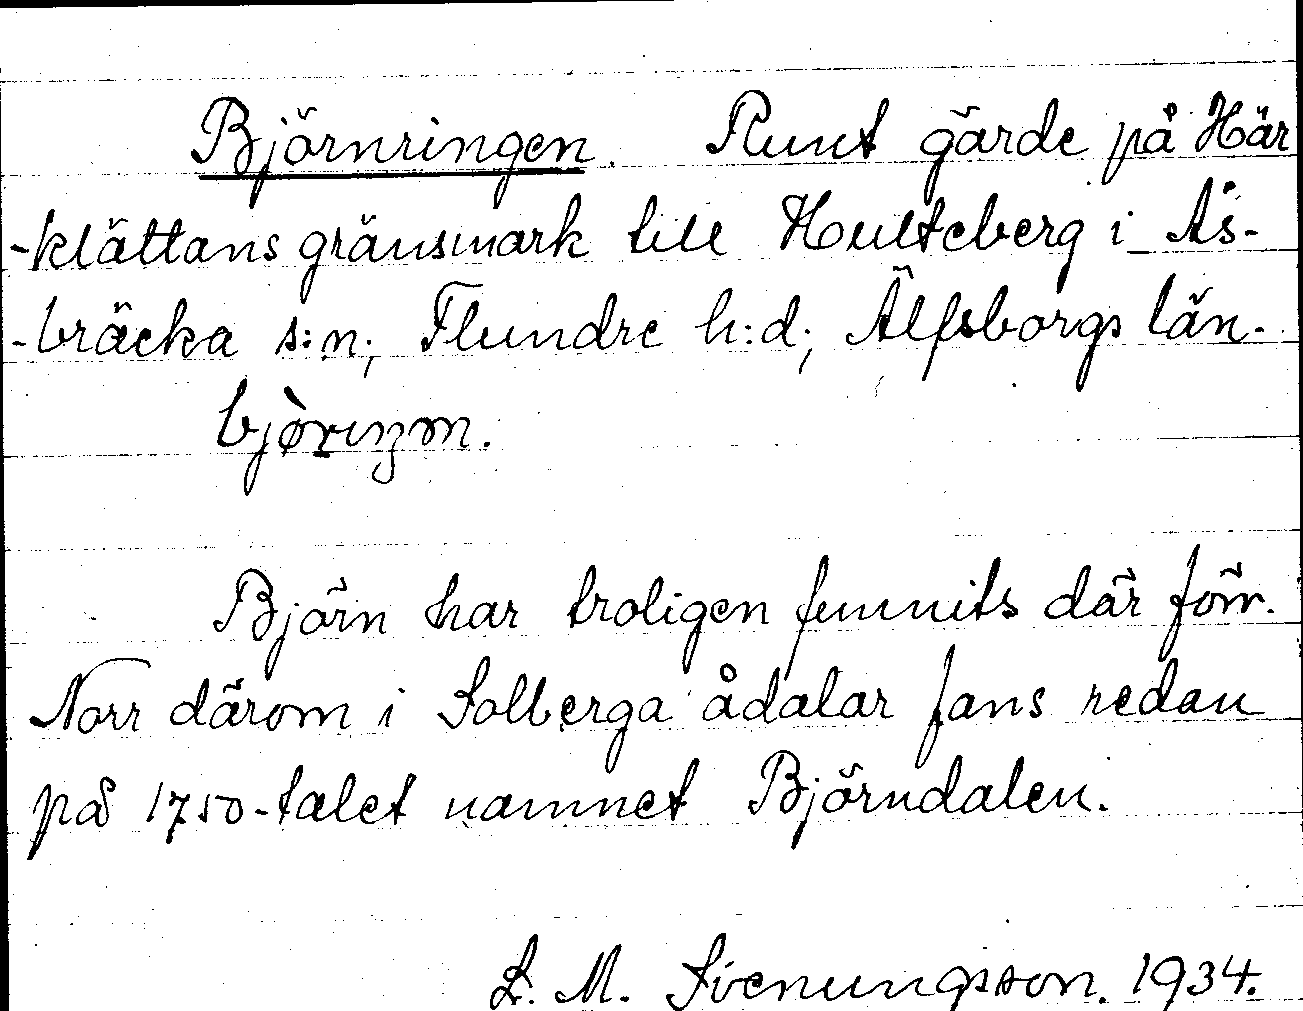 Björnringen. Runt gärde på Här
-klättans gränsmark till Hulteberg i Ås-
-bräcka s:n; Flundre h:d; Älfsborgs län.
Björn har troligen funnits där förr.
Norr därom i Solberga ådalar fans redan
på 1750-talet namnet Björndalen.
L. M. Svenungsson. 1934.